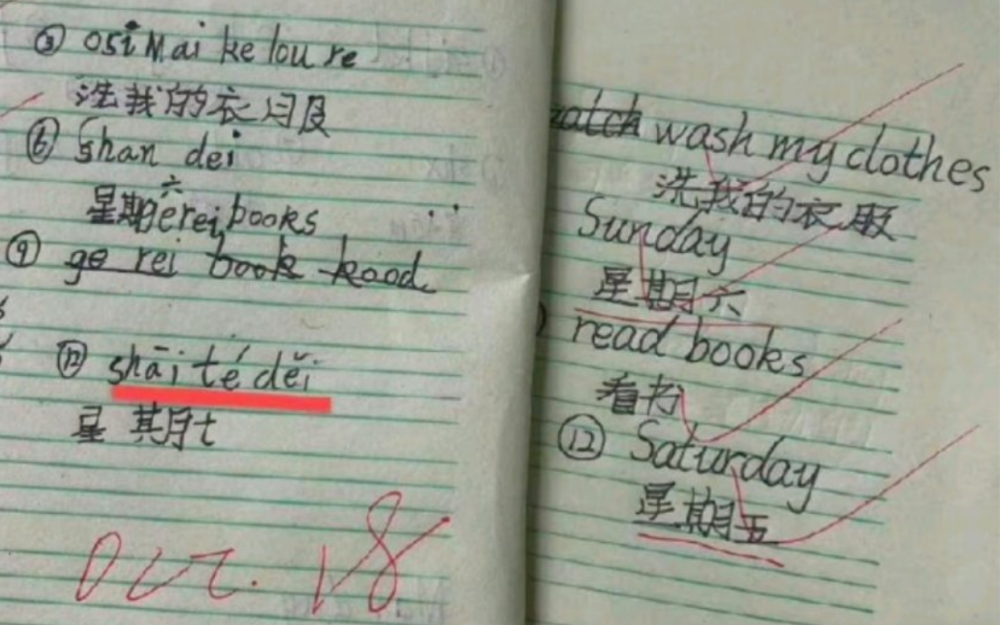 ③ osi Mai ke lou re
洗我的衣服
⑥ shan dei
星期六
rei books
⑨ go rei book
⑫ shāi té děi
星期七
Oct. 18
wash my clothes
洗我的衣服
Sunday
星期六
read books
看书
⑫ Saturday
星期五